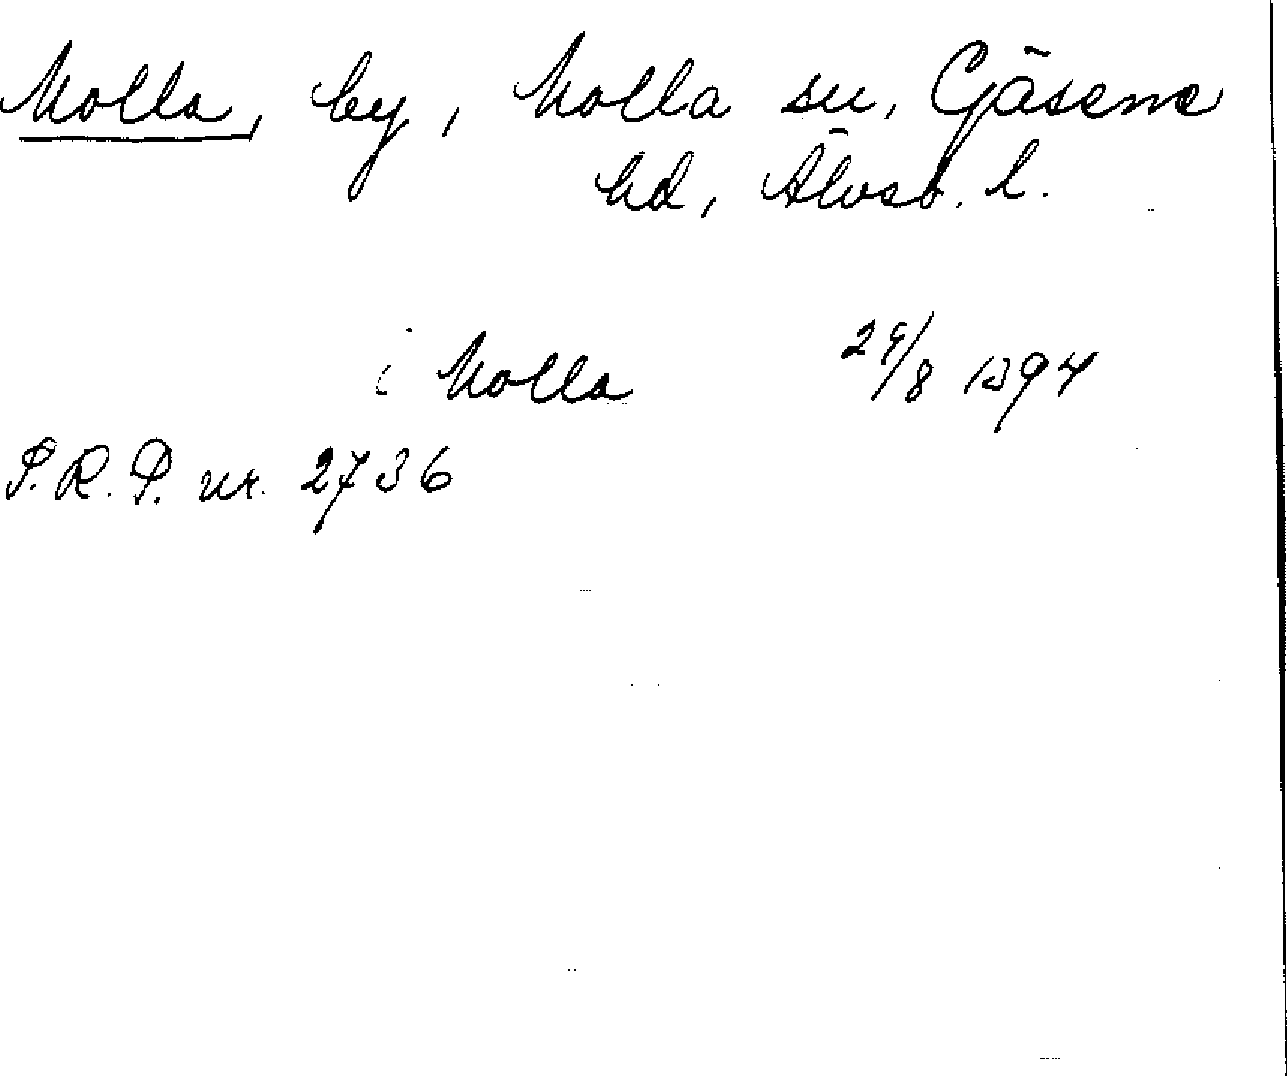 Molla, by, Molla sn, Gäsene
hd, Älvsb. l.
i Molla 29/8 1394
P.R.P. nr. 2736